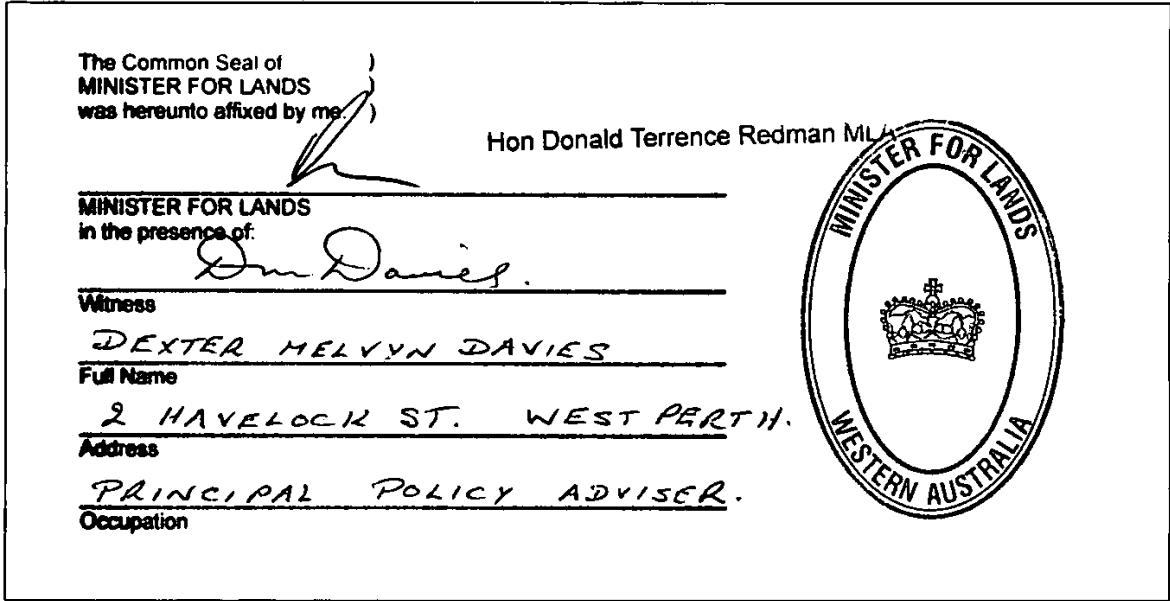 The Common Seal of )
MINISTER FOR LANDS )
was hereunto affixed by me: )
Hon Donald Terrence Redman MLA
MINISTER FOR LANDS
in the presence of:
Dm Davies.
Witness
DEXTER MELVYN DAVIES
Full Name
2 HAVELOCK ST. WEST PERTH.
Address
PRINCIPAL POLICY ADVISER.
Occupation
MINISTER FOR LANDS
WESTERN AUSTRALIA